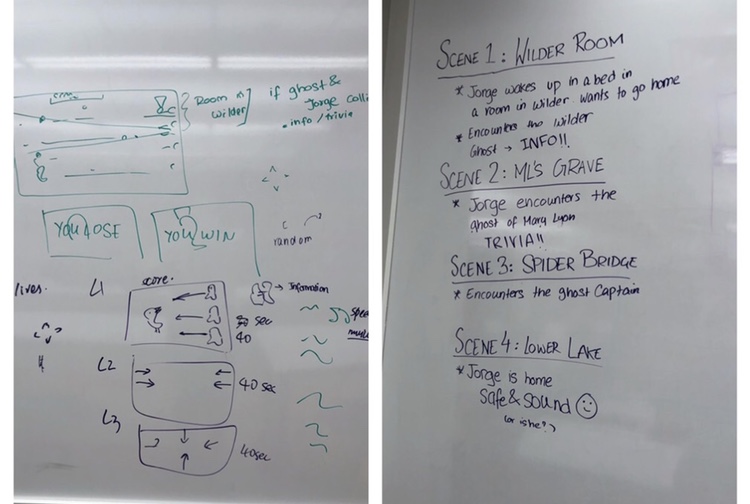 Room in
Wilder
if ghost &
Jorge Colli
• info / trivia
YOU LOSE
YOU WIN
random
lives.
L1
score.
→ Information
sec
40
L2
40 sec
L3
40sec
SCENE 1: WILDER ROOM
* Jorge wakes up in a bed in
a room in wilder. wants to go home
* Encounters the Wilder
Ghost → INFO!!
SCENE 2: ML'S GRAVE
* Jorge encounters the
ghost of Mary Lyon
TRIVIA!!
SCENE 3: SPIDER BRIDGE
* Encounters the ghost Captain
SCENE 4: LOWER LAKE
* Jorge is home
safe & sound ☺
(or is he?)